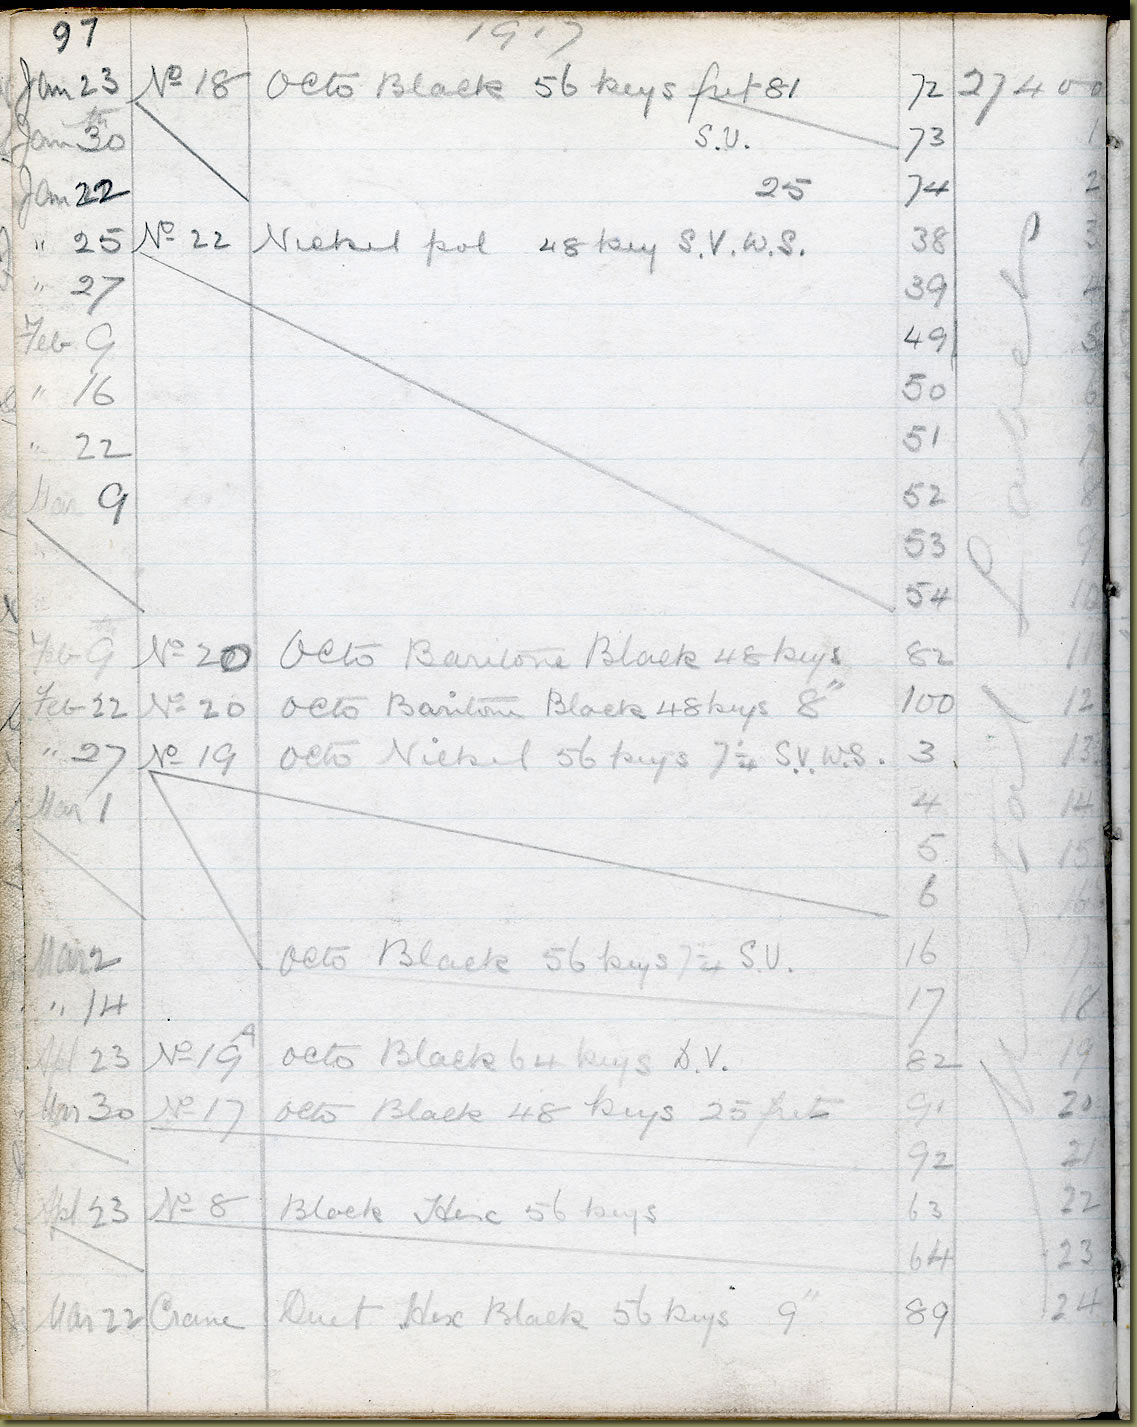 97 1917
Jan 23 No 18 Octo Black 56 keys fret 81 72 27400
Jan 30th S.V. 73 1
Jan 22 25 74 2
" 25 No 22 Nickel pol 48 key S.V.W.S. 38 3
" 27 39 4
Feb 9 49 5
" 16 50 6
" 22 51 7
Mar 9 52 8
53 9
54 10
Feb 9th No 20 Octo Baritone Black 48 keys 82 11
Feb 22 No 20 Octo Baritone Black 48 keys 8" 100 12
" 27 No 19 Octo Nickel 56 keys 7¼ S.V.W.S. 3 13
Mar 1 4 14
5 15
6 16
Mar 2 Octo Black 56 keys 7¼ S.V. 16 17
" 14 17 18
Apl 23 No 19A Octo Black 64 keys D.V. 82 19
Mar 30 No 17 Octo Black 48 keys 25 fret 91 20
92 21
Apl 23 No 8 Black Hex 56 keys 63 22
64 23
Mar 22 Crane Duet Hex Black 56 keys 9" 89 24